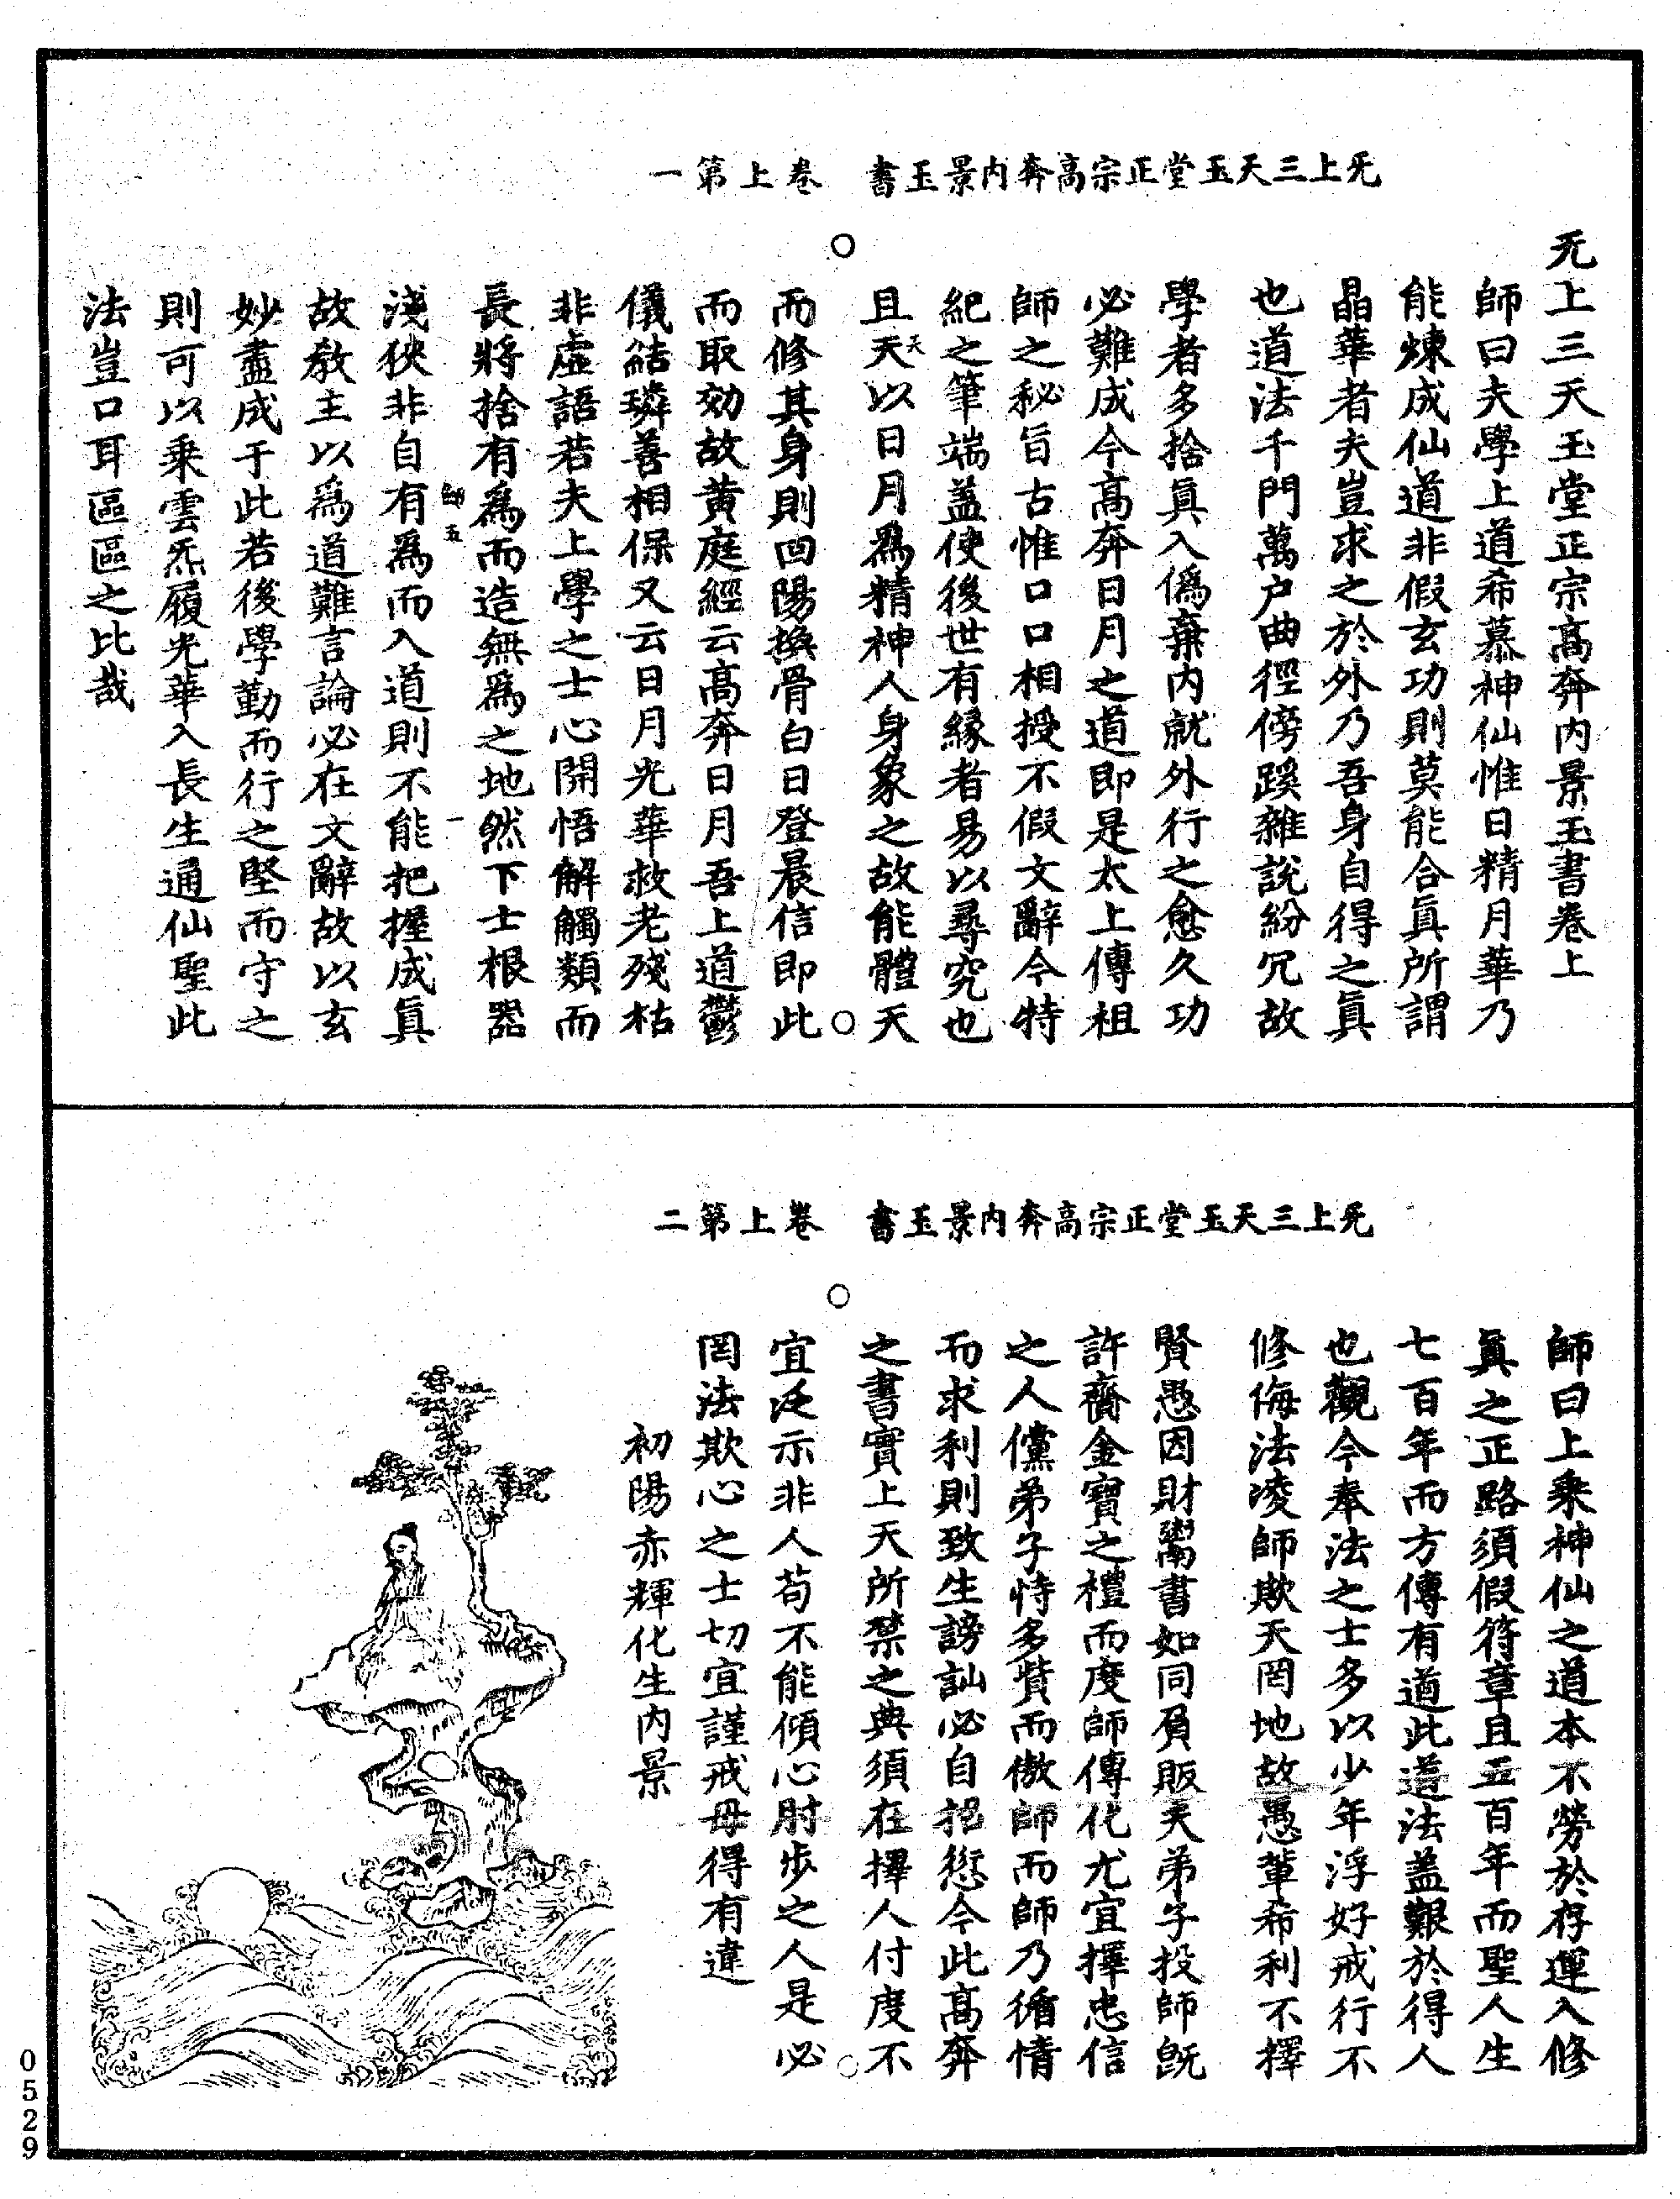 无上三天玉堂正宗高奔內景玉書　卷上第一
无上三天玉堂正宗高奔內景玉書卷上
師曰夫學上道希慕神仙惟日精月華乃
能煉成仙道非假玄功則莫能合眞所謂
晶華者夫豈求之於外乃吾身自得之眞
也道法千門萬户曲徑傍蹊雜說紛冗故
學者多捨眞入僞棄内就外行之愈久功
必難成今高奔日月之道即是太上傳祖
師之秘旨古惟口口相授不假文辭今特
紀之筆端盖使後世有緣者易以尋究也
且天天以日月爲精神人身象之故能體天
而修其身則回陽換骨白日登晨信即此
而取効故黄庭經云高奔日月吾上道鬱
儀結璘善相保又云日月光華救老殘枯
非虛語若夫上學之士心開悟解觸類而
長將捨有爲而造無爲之地然下士根器
師五　一
淺狹非自有爲而入道則不能把握成眞
故教主以爲道難言論必在文辭故以玄
妙盡成于此若後學勤而行之堅而守之
則可以乘雲炁履光華入長生通仙聖此
法豈口耳區區之比哉
无上三天玉堂正宗高奔内景玉書　卷上第二
師曰上乘神仙之道本不勞於存運入修
眞之正路須假符章且五百年而聖人生
七百年而方傳有道此道法盖艱於得人
也觀今奉法之士多以少年浮好戒行不
修侮法凌師欺天罔地故愚輩希利不擇
賢愚因財鬻書如同負販夫弟子投師旣
許齎金寶之禮而度師傳化尤宜擇忠信
之人儻弟子恃多貲而傲師而師乃循情
而求利則致生謗訕必自招愆今此高奔
之書實上天所禁之典須在擇人付度不
宜泛示非人苟不能傾心肘步之人是必
罔法欺心之士切宜謹戒毋得有違
初陽赤輝化生内景
0529